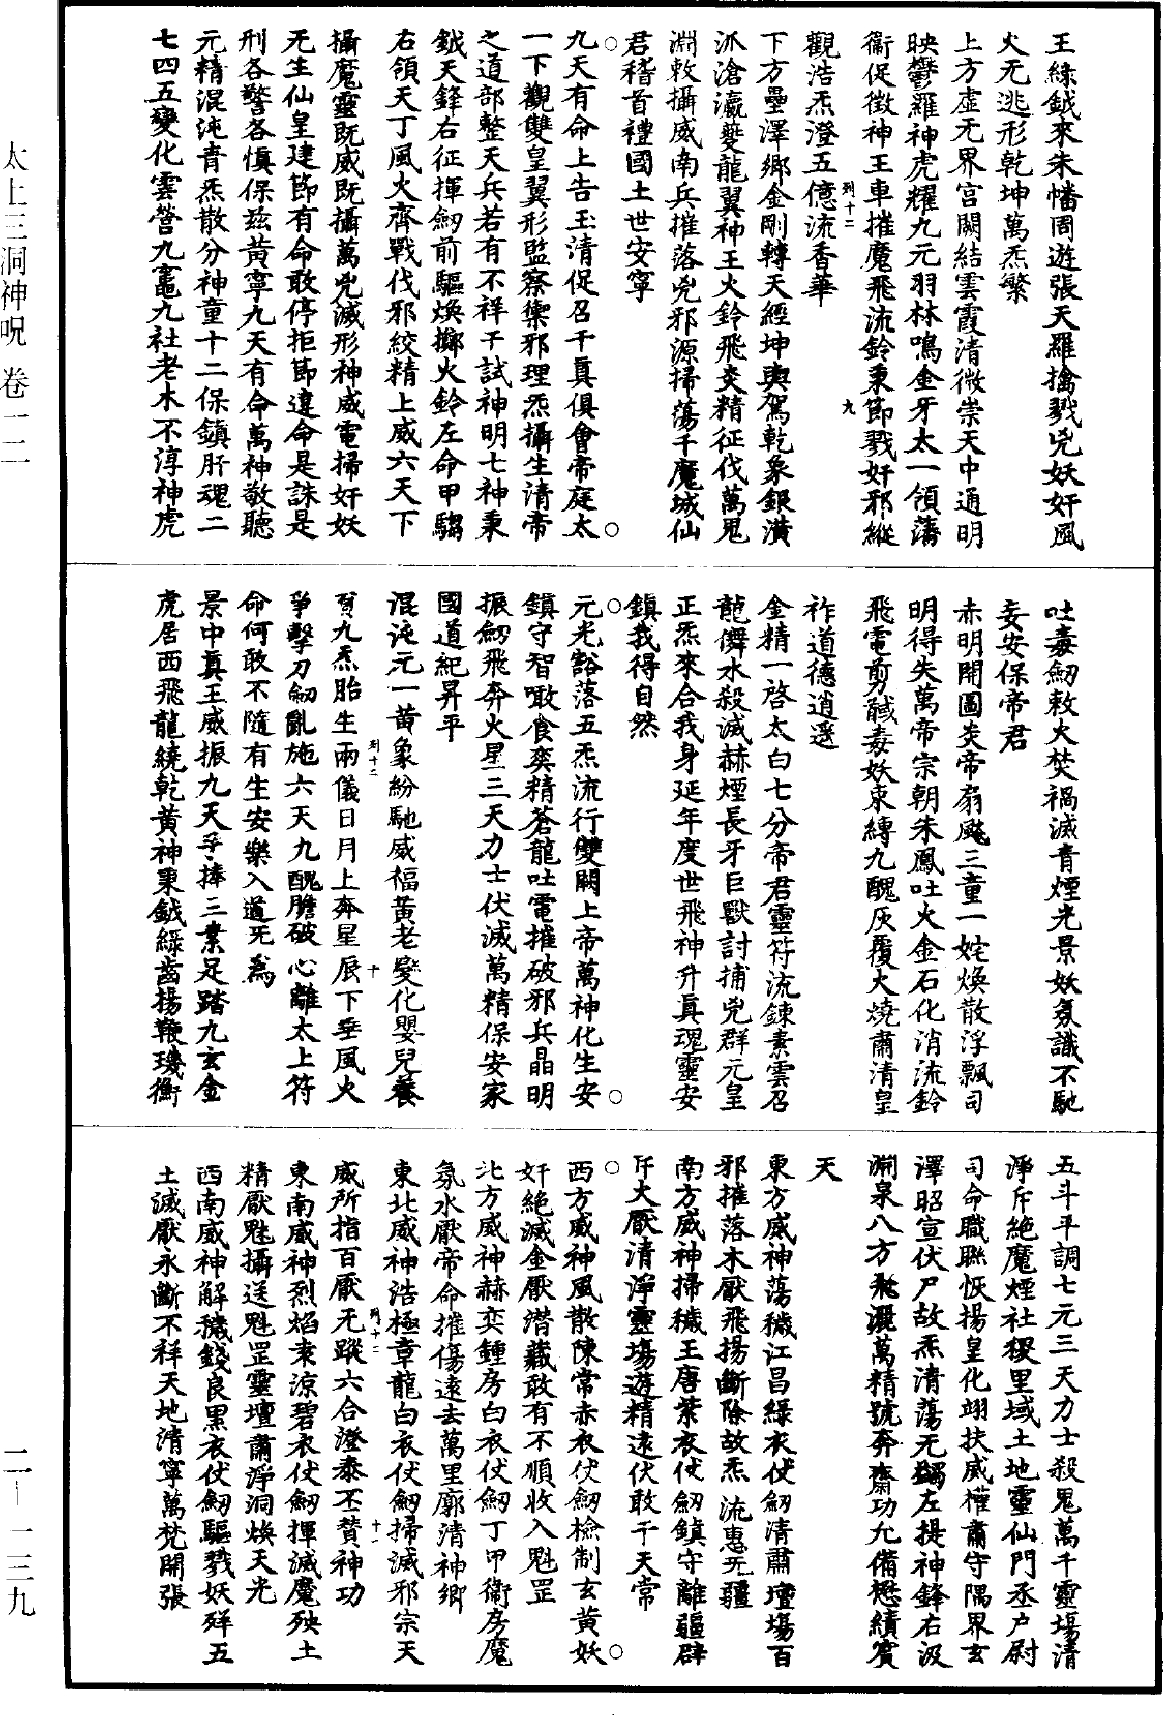 王綠鉞來朱幡周遊張天羅擒戮兇妖奸風
火无逃形乾坤萬炁繁
上方虛无界宮闕結雲霞清微崇天中通明
映鬱羅神虎耀九元羽林鳴金牙太一領藩
衞促徵神王車摧魔飛流鈴秉節戮奸邪縱
觀浩炁澄五億流香華
列十二
九
下方壘澤鄉金剛轉天經坤輿駕乾象銀潢
派滄瀛夔龍翼神王火鈴飛炎精征伐萬鬼
淵敕攝威南兵摧落兇邪源掃蕩千魔城仙
君稽首禮國土世安寧
九天有命上告玉清促召千真俱會帝庭太
一下觀雙皇翼形監察禦邪理炁攝生清帝
之道部整天兵若有不祥干試神明七神秉
鉞天鋒右征揮劒前驅煥擲火鈴左命甲騶
右領天丁風火齊戰伐邪絞精上威六天下
攝魔靈既威既攝萬兇滅形神威電掃奸妖
无生仙皇建節有命敢停拒節違命是誅是
刑各警各慎保茲黃寧九天有命萬神敬聽
元精混沌青炁散分神童十二保鎮肝魂二
七四五變化雲營九竈九社老木不淳神虎
吐毒劒敕火焚禍滅青煙光景妖氛讖不馳
妄安保帝君
赤明開圖炎帝扇颷三童一姹煥散浮飄司
明得失萬帝宗朝朱鳳吐火金石化消流鈴
飛電剪馘毒妖束縛九醜灰覆火燒肅清皇
祚道德逍遥
金精一啓太白七分帝君靈符流鍊素雲召
龍儛水殺滅赫煙長牙巨獸討捕兇群元皇
正炁來合我身延年度世飛神升真瑰靈安
鎮我得自然
元光豁落五炁流行雙闕上帝萬神化生安
鎮守智噉食奕精蒼龍吐電摧破邪兵晶明
振劒飛奔火星三天力士伏滅萬精保安家
國道紀昇平
混沌元一黃象紛馳威福黃老變化嬰兒養
育九炁胎生兩儀日月上奔星辰下垂風火
列十二
十
爭擊刀劒亂施六天九醜膽破心離太上符
命何敢不隨有生安樂入道无為
景中真王威振九天手捧三業足踏九玄金
虎居西飛龍繞乾黃神秉鉞綠齒揚鞭璣衡
五斗平調七元三天力士殺鬼萬千靈場清
淨斥絶魔煙社稷里域土地靈仙門丞户尉
司命職聯恢揚皇化翊扶威權肅守隅界玄
澤昭宣伏尸故炁清蕩无蠲左提神鋒右汲
淵泉八方飛灑萬精號奔齋功允備懋績賓
天
東方威神蕩穢江昌綠衣仗劒清肅壇場百
邪摧落木厭飛揚斷除故炁流惠无疆
南方威神掃穢王唐紫衣仗劒鎮守離疆辟
斥火厭清淨靈場遊精遠伏敢干天常
西方威神風散陳常赤衣仗劒檢制玄黃妖
奸絶滅金厭潛藏敢有不順收入魁罡
北方威神赫奕鍾房白衣仗劒丁甲衛房魔
氛水厭帝命摧傷遠去萬里廓清神鄉
東北威神浩極章龍白衣仗劒掃滅邪宗天
威所指百厭无蹤六合澄泰丕贊神功
列十二
十一
東南威神烈焰束涼碧衣仗劒揮滅魔殃土
精厭魁攝送魁罡靈壇肅淨洞煥天光
西南威神解穢錢良黑衣仗劒驅戮妖殃五
土滅厭永斷不祥天地清寧萬梵開張
太上三洞神呪 卷一一
二—一三九